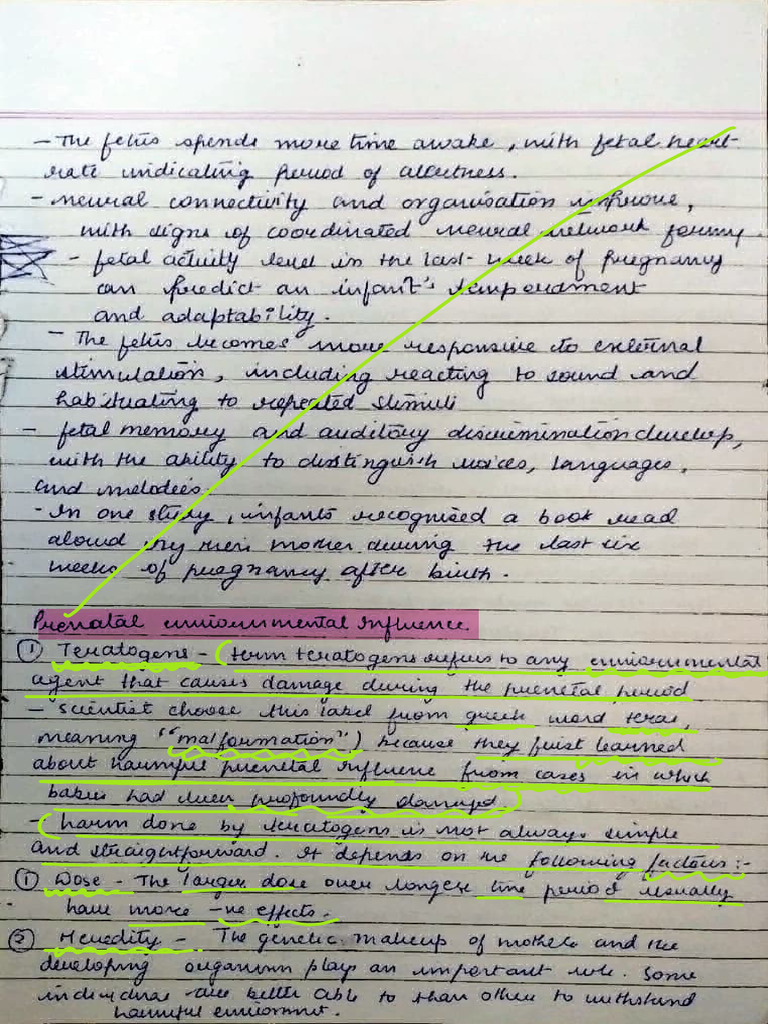 - The fetus spends more time awake, with fetal heart-
rate indicating period of alertness.
- neural connectivity and organisation improve,
with signs of coordinated neural network forming.
- fetal activity level in the last week of pregnancy
can predict an infant's temperdment
and adaptability.
- The fetus becomes more responsive to external
stimulation, including reacting to sound and
habituating to repeated stimuli
- fetal memory and auditory discrimination develop,
with the ability to distinguish voices, languages,
and melodies.
- In one study, infants recognised a book read
aloud by their mother during the last six
weeks of pregnancy after birth.
Prenatal environmental Influence.
① Teratogens - (term teratogens refers to any environmental
agent that causes damage during the prenetal period
- Scientist choose this label from greek word teras,
meaning "malformation") because they first learned
about harmful prenetal influence from cases in which
babies had been profoundly damaged)
- (harm done by teratogens is not always simple
and straightforward. It depends on the following factors :-
① Dose - The larger dose over longer time period usually
have more -ve effects.
② Heredity - The genetic makeup of mother and the
developing organism play an important role. Some
individual are better able to than other to withstand
harmful enviornment.